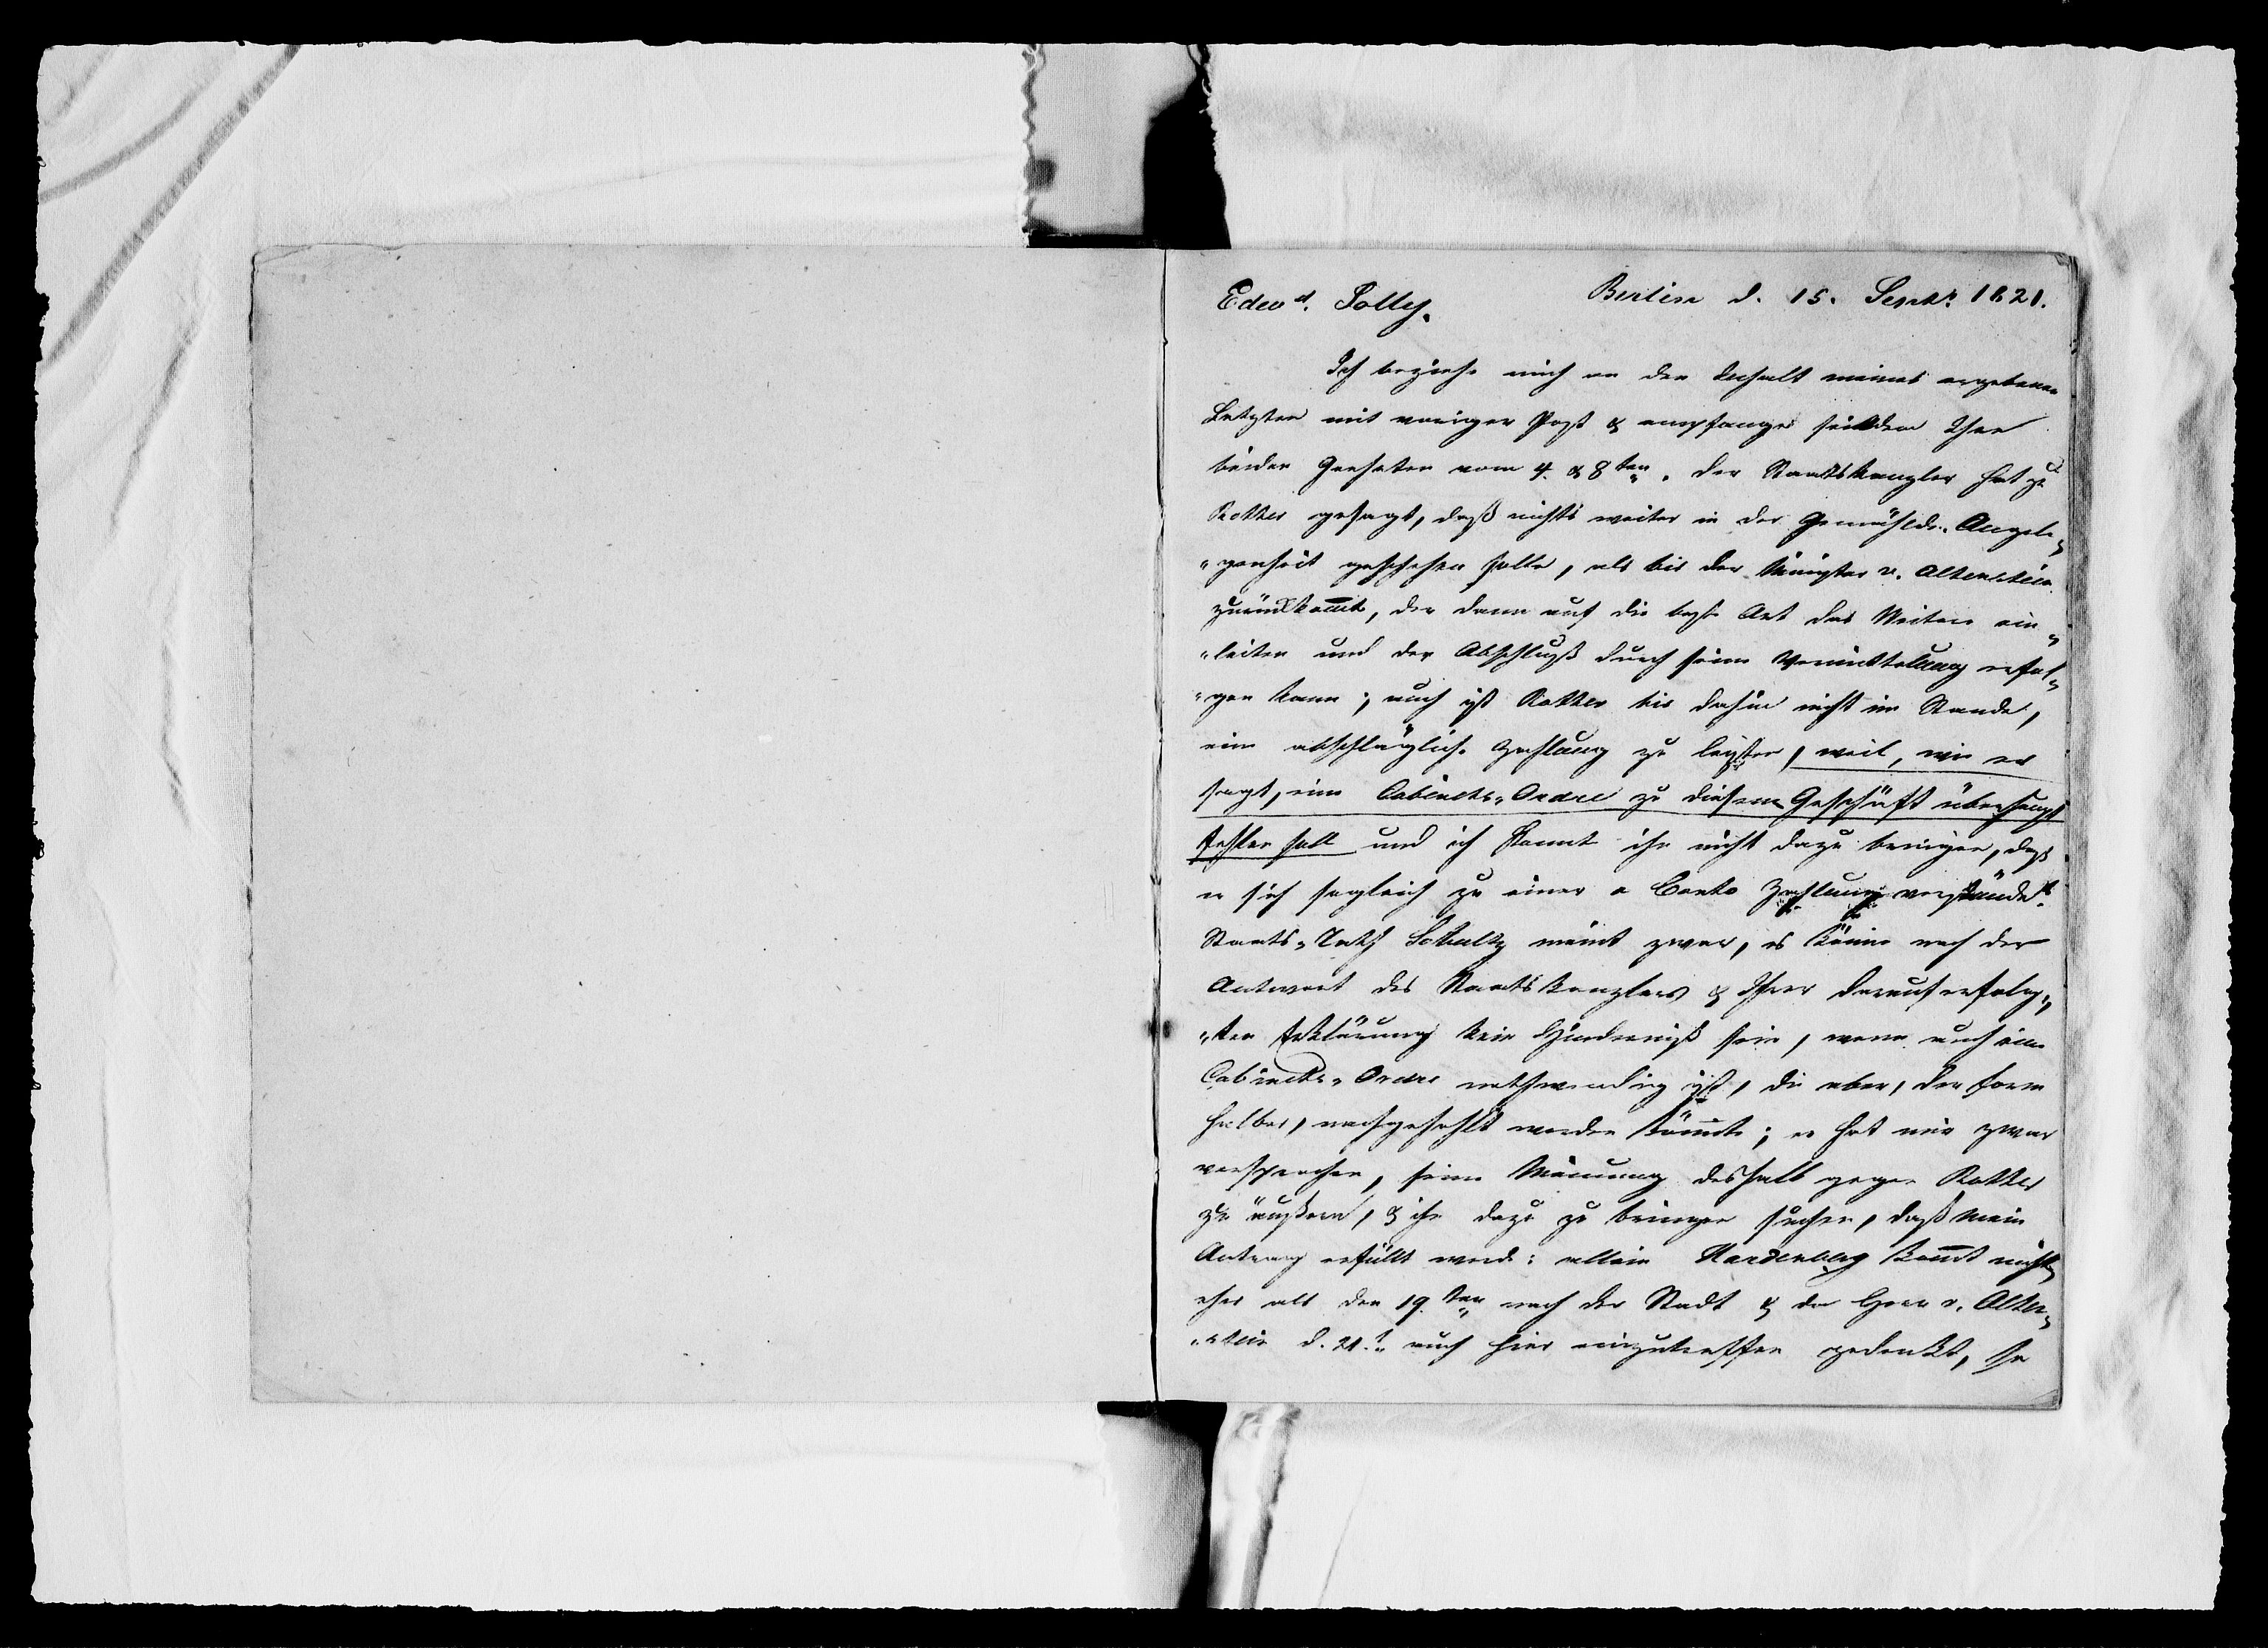 Edwd. Solly.
Berlin d. 15. Septbr. 1821.
Ich beziehe mich an den Inhalt meines ergebenen
Letzten mit voriger Post & empfange seitdem Ihre
beiden Geehrten vom 4. & 8ten. Der Staatskanzler hat zu
Rother gesagt, daß nichts weiter in der Gemählde-Angele„
„genheit geschehen solle, als bis der Minister v. Altenstein
zurückkomt, der dann auf die beste Art das Weitere ein„
„leiten und der Abschluß durch seine Vermittelung erfol„
„gen kann; auch ist Rother bis dahin nicht im Stande,
eine abschlägliche Zahlung zu leisten, weil, wie er
sagt, eine Cabinets-Ordre zu diesem Geschäft überhaupt
fehlen soll und ich konnte ihn nicht dazu bringen, daß
er sich sogleich zu einer a Conto Zahlung verstände.
Staats-Rath Schultz meint zwar, es könne nach der
Antwort des Staatskanzlers & Ihrer darauf erfolg„
„ten Erklärung kein Hinderniß sein, wenn auch eine
Cabinets-Ordre nothwendig ist, die aber, der Form
halber, nachgehohlt werden könnte; er hat mir zwar
versprochen, seine Meinung deshalb gegen Rother
zu äußern, & ihn dazu zu bringen suchen, daß mein
Antrag erfüllt werde: allein Hardenberg komt nicht
eher als den 19.ten nach der Stadt & da Herr v. Alten„
„stein d. 21.t auch hier einzutreffen gedenkt, so